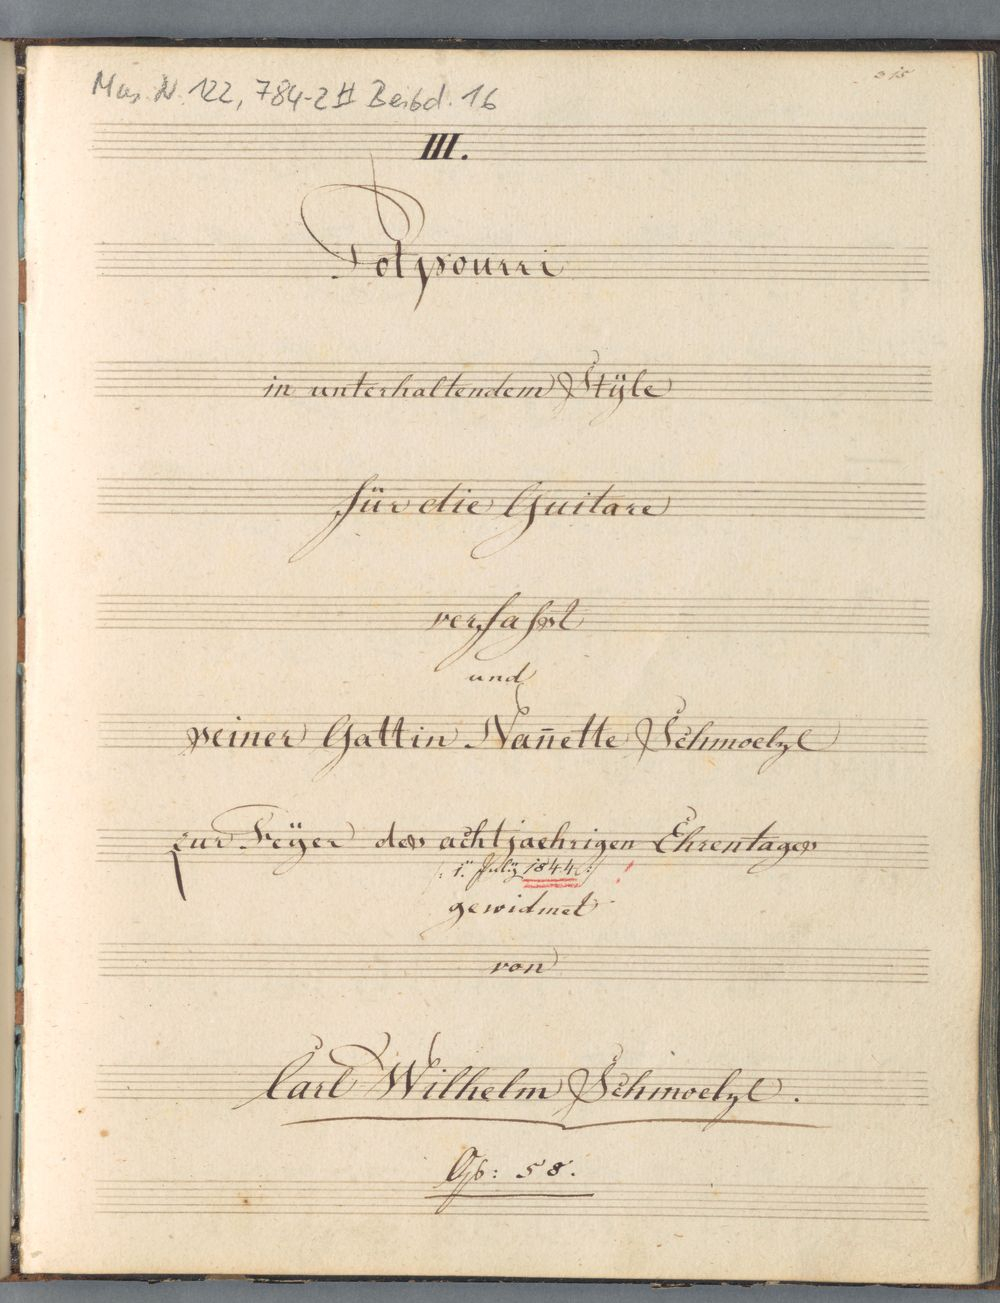 Mus. N. 122, 784-2 II Beibd. 16
III.
Potpourri
in unterhaltendem Stÿle
für die Guitare
verfasst
und
seiner Gattin Nan̅ette Schmoelzl
zur Feÿer des achtjaehrigen Ehrentages
/: 1. Julÿ 1844 :/
gewidmet
von
Carl Wilhelm Schmoelzl.
Op: 58.